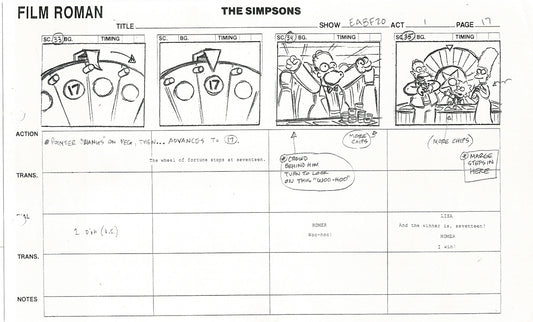 FILM ROMAN
THE SIMPSONS
TITLE
SHOW EABF20 ACT 1 PAGE 17
SC. 33 BG. TIMING
SC. BG. TIMING
SC. 34 BG. TIMING
SC. 35 BG. TIMING
17
17
ACTION
POINTER HANGS ON PEG, THEN... ADVANCES TO 17.
The wheel of fortune stops at seventeen.
MORE CHIPS
CROWD BEHIND HIM TURN TO LOOK ON THIS "WOO-HOO"
(MORE CHIPS)
MARGE STEPS IN HERE
TRANS.
HOMER
Woo-hoo!
LISA
And the winner is, seventeen!
HOMER
I win!
TRANS.
NOTES